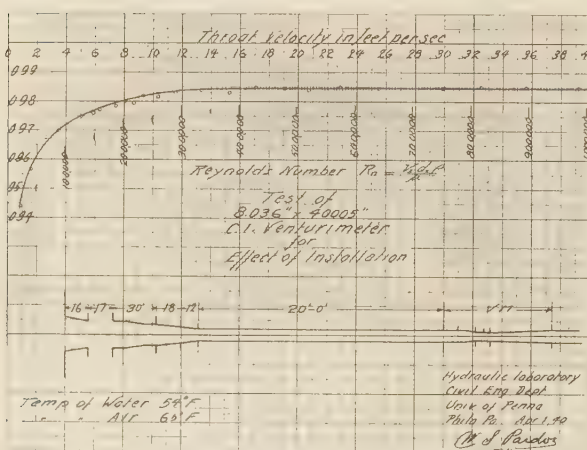 Throat Velocity in feet per sec
0 2 4 6 8 10 12 14 16 18 20 22 24 26 28 30 32 34 36 38
099
098
097
096
95
094
100000 200000 300000 400000 500000 600000 700000 800000 900000
Reynolds Number Rn =
Test of
8.036" x 4.0005"
C.I. Venturimeter
for
Effect of Installation
16 17 30' 18 12 20'-0" V M
Hydraulic laboratory
Civil Eng Dept
Univ of Penna
Phila Pa. Apr 1, 40
Temp of Water 54°F
" " Air 60°F
W S Pardoe